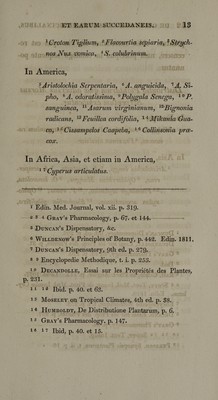 ET EARUM SUCCEDANEIS. 15
¹Croton Tiglium, ²Flacourtia sepiaria, ³Strych-
nos Nux vomica, ⁴S. colubrinum.
In America,
⁵Aristolochia Serpentaria, ⁶A. anguicida, ⁷A. Si-
pho, ⁸A. odoratissima, ⁹Polygala Senega, ¹⁰P.
sanguinea, ¹¹Asarum virginianum, ¹²Bignonia
radicans, ¹³Feuillea cordifolia, ¹⁴Mikania Gua-
co, ¹⁵Cissampelos Caapeba, ¹⁶Collinsinia præ-
cox.
In Africa, Asia, et etiam in America,
¹⁷Cyperus articulatus.
¹ Edin. Med. Journal, vol. xii. p. 319.
² ³ ⁴ GRAY's Pharmacology, p. 67. et 144.
⁵ DUNCAN's Dispensatory, &c.
⁶ WILLDENOW's Principles of Botany, p. 442. Edin. 1811.
⁷ DUNCAN's Dispensatory, 9th ed. p. 279.
⁸ ⁹ Encyclopédie Methodique, t. i. p. 255.
¹⁰ DECANDOLLE, Essai sur les Propriétés des Plantes,
p. 231.
¹¹ ¹² Ibid. p. 40. et 62.
¹³ MOSELEY on Tropical Climates, 4th ed. p. 38.
¹⁴ HUMBOLDT, De Distributione Plantarum, p. 6.
¹⁵ GRAY's Pharmacology, p. 147.
¹⁶ ¹⁷ Ibid, p. 40. et 15.